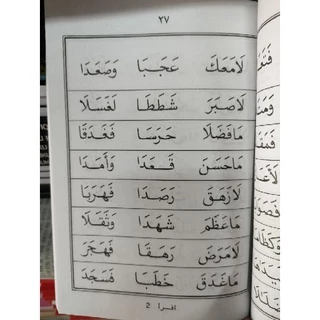 ٢٧
لَامَعَكَ عَجَبَا وَصَعَدَا
لَاصَبَرَ شَطَطَا لَغَسَلَا
مَافَضَلَا حَرَسَا فَغَدَقَا
مَاحَسَنَ قَعَدَا وَأَمَدَا
لَازَهَقَ رَصَدَا فَهَرَبَا
مَاعَظَمَ شَهَدَا وَثَقَلَا
لَامَرَضَ رَهَقَا فَهَجَرَ
مَاغَدَقَ حَطَبَا فَسَجَدَ
اقرأ 2